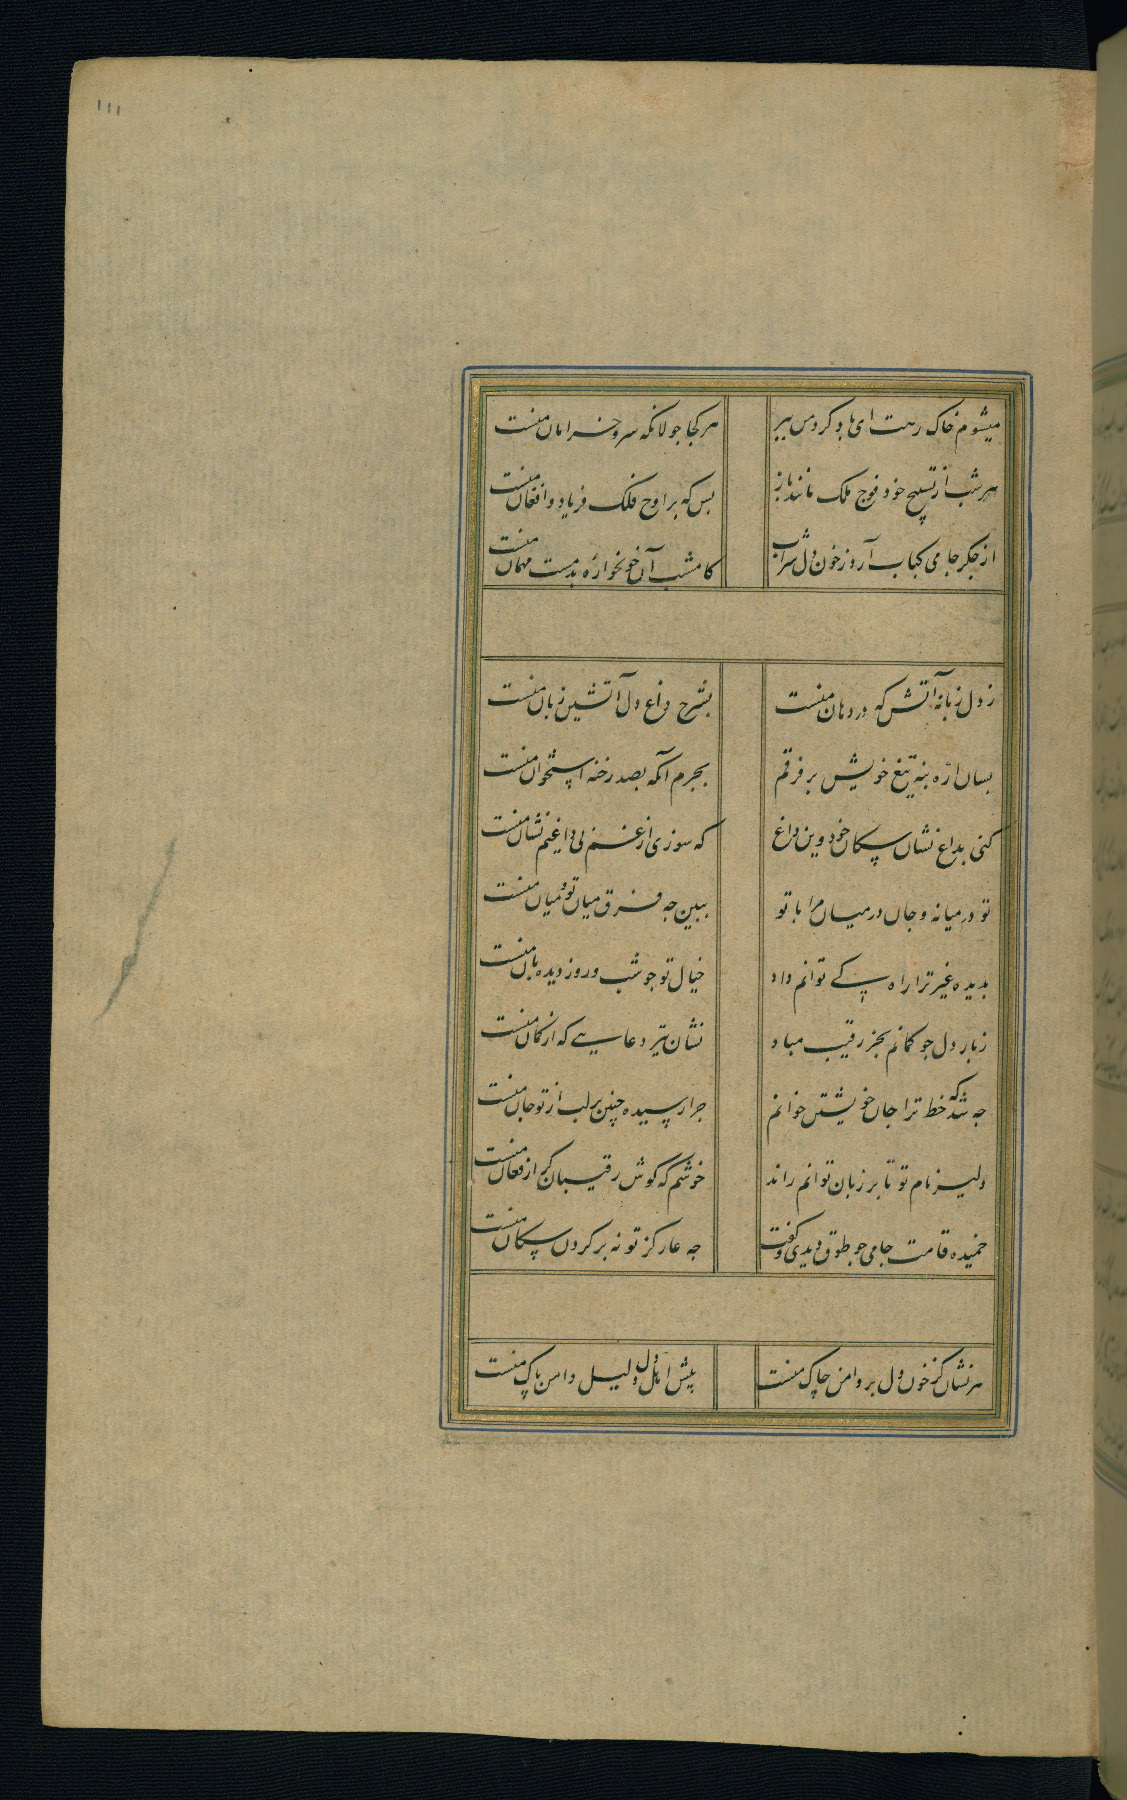 ١١١
میشوم خاک رهت ای باد گردمن ببر هر کجا جولانگه سرو خرامان منست
هر شب از تسبیح خود فوج ملک مانند باز بس که بر اوج فلک فریاد و افغان منست
از جگر جامی کباب آر و ز خون دل شراب کامشب آن خونخواره بدمست مهمان منست
ز دل زبانه آتش که در دهان منست بشرح داغ دل آتشین زبان منست
بسان ازه بنه تیغ خویش بر فرقم بجرم آنکه بصد رخنه استخوان منست
کنی بداغ نشان سکان خود وین داغ که سوزی از غم بی داغیم نشان منست
تو در میانه و جان در میان مرا با تو ببین چه فرق میان تو و میان منست
بدیده غیر ترا راه کے توانم داد خیال تو چو شب و روز دیده بان منست
ز بار دل چو کمانم بجز رقیب مباد نشان تیر دعایے که از کمان منست
چه شد که خط ترا جان خویشتن خوانم چرا رسیده چنین بر لب از تو جان منست
دلیر نام تو تا بر زبان توانم راند خوشم که گوش رقیبان کر از فغان منست
خمیده قامت جامی چو طوق دیدی و گفت چه عار کز تو نه بر گردن سکان منست
هر نشان کز خون دل بر دامن چاک منست پیش اهل دل دلیل دامن پاک منست